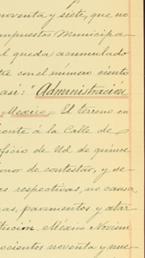 noventa y siete, que no
impuestos Municipa-
l queda acumulado
te con el número ciento
asi: "Administración
Mexico El terreno en
cuenta á la Calle de
oficio de Ud de quince
honor de contestar, y de-
es respectivas, no causa
gas, pavimentos y atar
tución. México Noviem
ocientos noventa y nue-